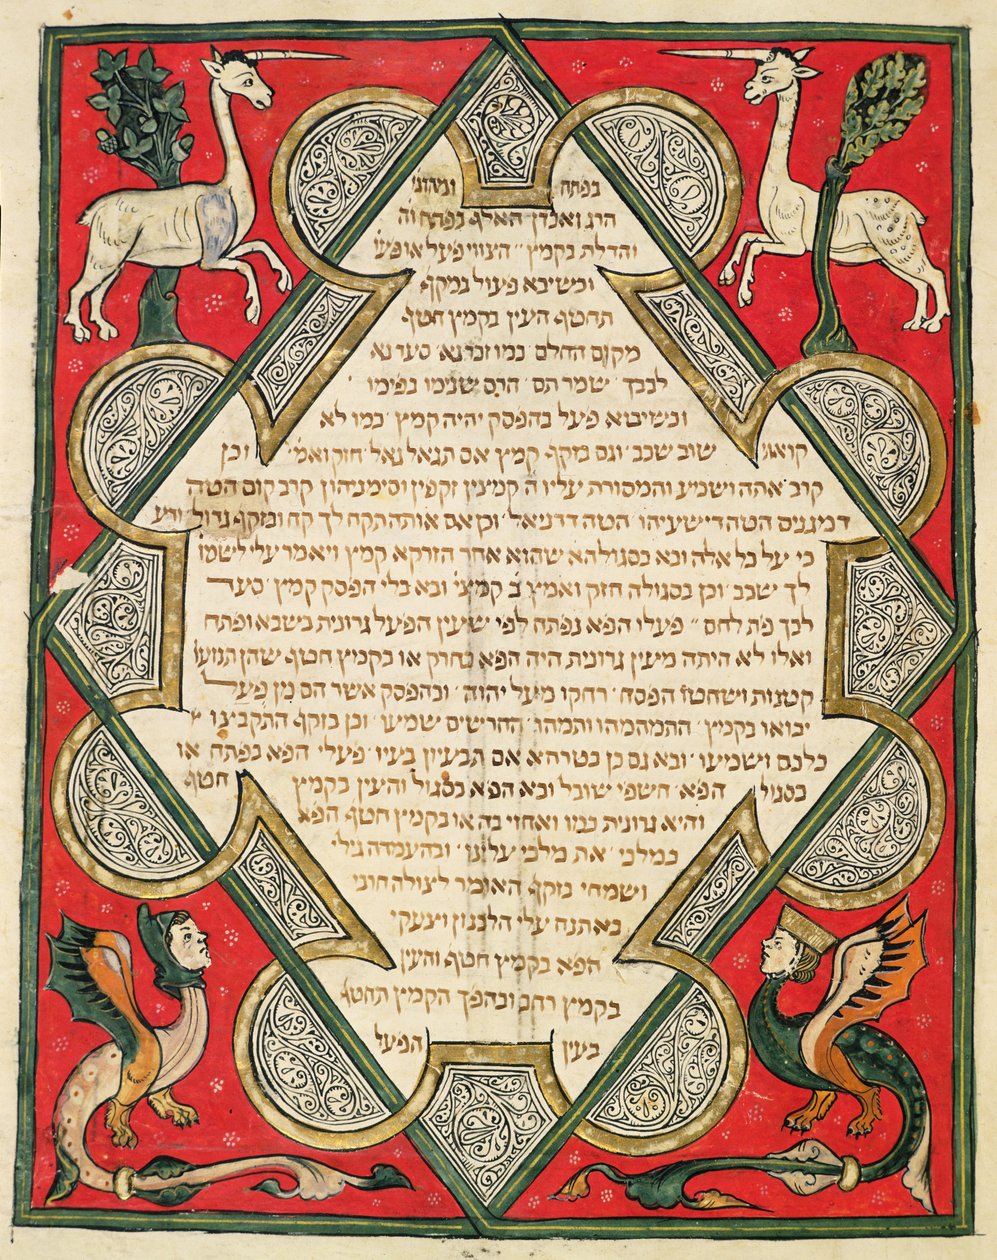 בפתח ומהדני
הרג ואבדן האלף בפתח וה
והדלת בקמץ הצווי פועל או פעו
ובשיבא פעול במקף
תחטף העין בקמץ חטף
מקום החלם כמו זכר נא סעד נא
לבך שמר תם הרס שנימו בפימו
ובשיבוא פעל בהפסק יהיה קמץ כמו לא
קואני שוב שכב וגם בזקף קמץ אם תגאל גאל חזק ואמ׳ וכן
קוב אתה וישמיע והמסורת עליו ה קמיצין זקפין וסימניהון קרב קום הטה
דמגנים הטה דישעיהו הטה דדניאל וכן אם אותה תקח לך קח ובזקף גדול ודע
כי על כל אלה ובא בסגולה שהוא אחר הזרקא קמץ ויאמר עלי לשמו
לך שכב וכן בסגולה חזק ואמץ ב קמיצ׳ ובא בלי הפסק קמץ סעד
לבך פת לחם פעלו הפא נפתה לפי שעין הפעל גרונית בשבא ופתח
ואלו לא היתה מעין גרונית היה הפא בחרק או בקמץ חטף שהן תנועו
קטנות ושחטו הפסח רחקו מעל יהוה ובהפסק אשר הם מן פעל
יבואו בקמץ התמהמהו ותמהו החרשים שמעו וכן בזקף התקבצו
כלכם ושמעו ובא גם כן בטרחא אם תבעיון בעיו פעלי הפא בפתח או
בסגול הפא חשפי שובל ובא הפא בסגול והעין בקמץ חטף
והיא גרונית כמו ואחזי בה או בקמץ חטף הפא
כמלכי את מלכי עלינו ובהעמדה גילי
ושמחי בזקף האומר לצולה חרבי
באתנח עלי הלבנון וצעקי
הפא בקמץ חטף והעין
בקמץ רחב ובהפך הקמץ תחטף
בעין הפעל